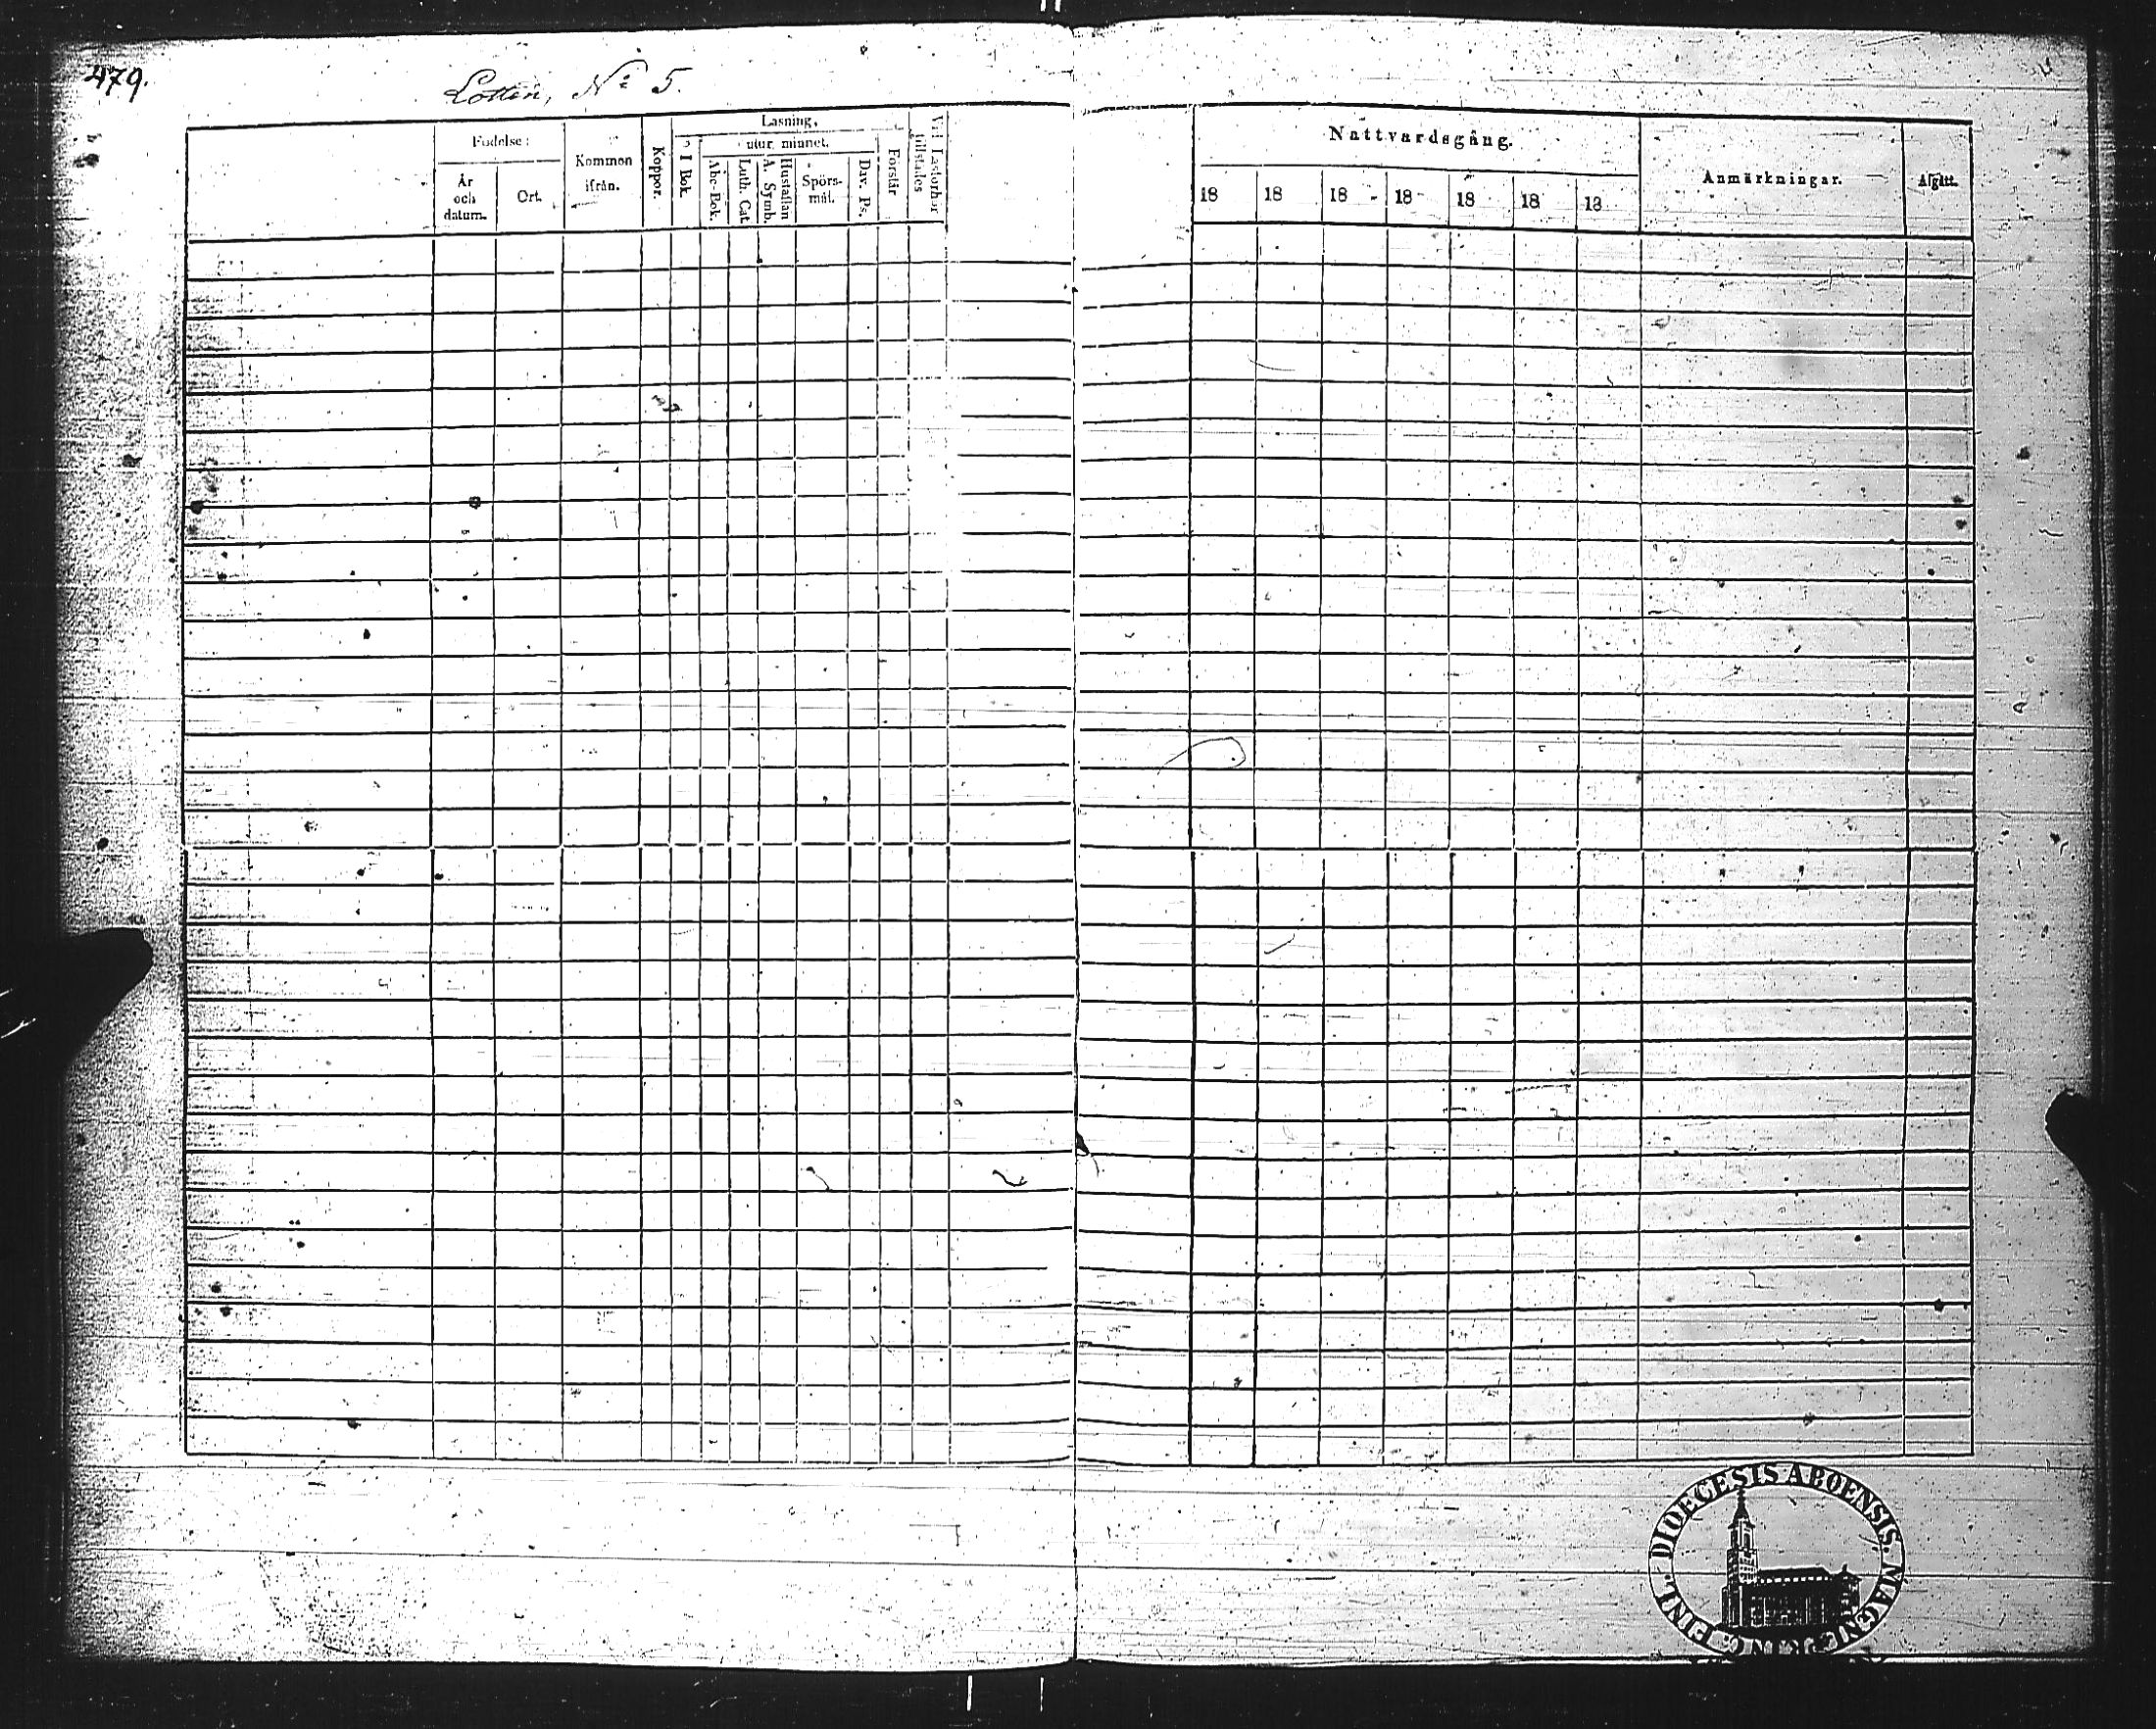 479.
Lotten, No 5.
Födelse:
År
och
datum.
Ort.
Kommen
ifrån.
Koppor.
Läsning,
I Bok.
utur minnet.
Abc-Bok.
Luth. Cat.
A. Symb.
Hustaflan
Spörs-
mål.
Dav. Ps.
Förstår
Vid Läsförhör
tillstädes
Nattvardsgång.
18 18 18 18 18 18 18
Anmärkningar.
Afgått.
DIOECESIS ABOENSIS. MAGN